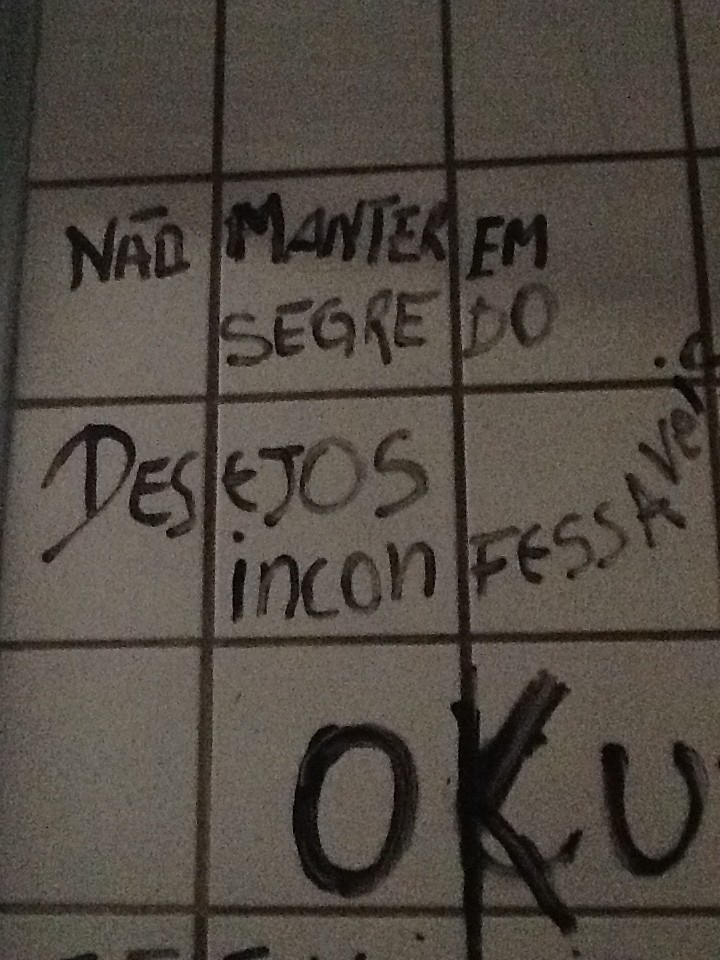 NÃO MANTER EM
SEGREDO
DESEJOS
inconFESSAVeis
OKU